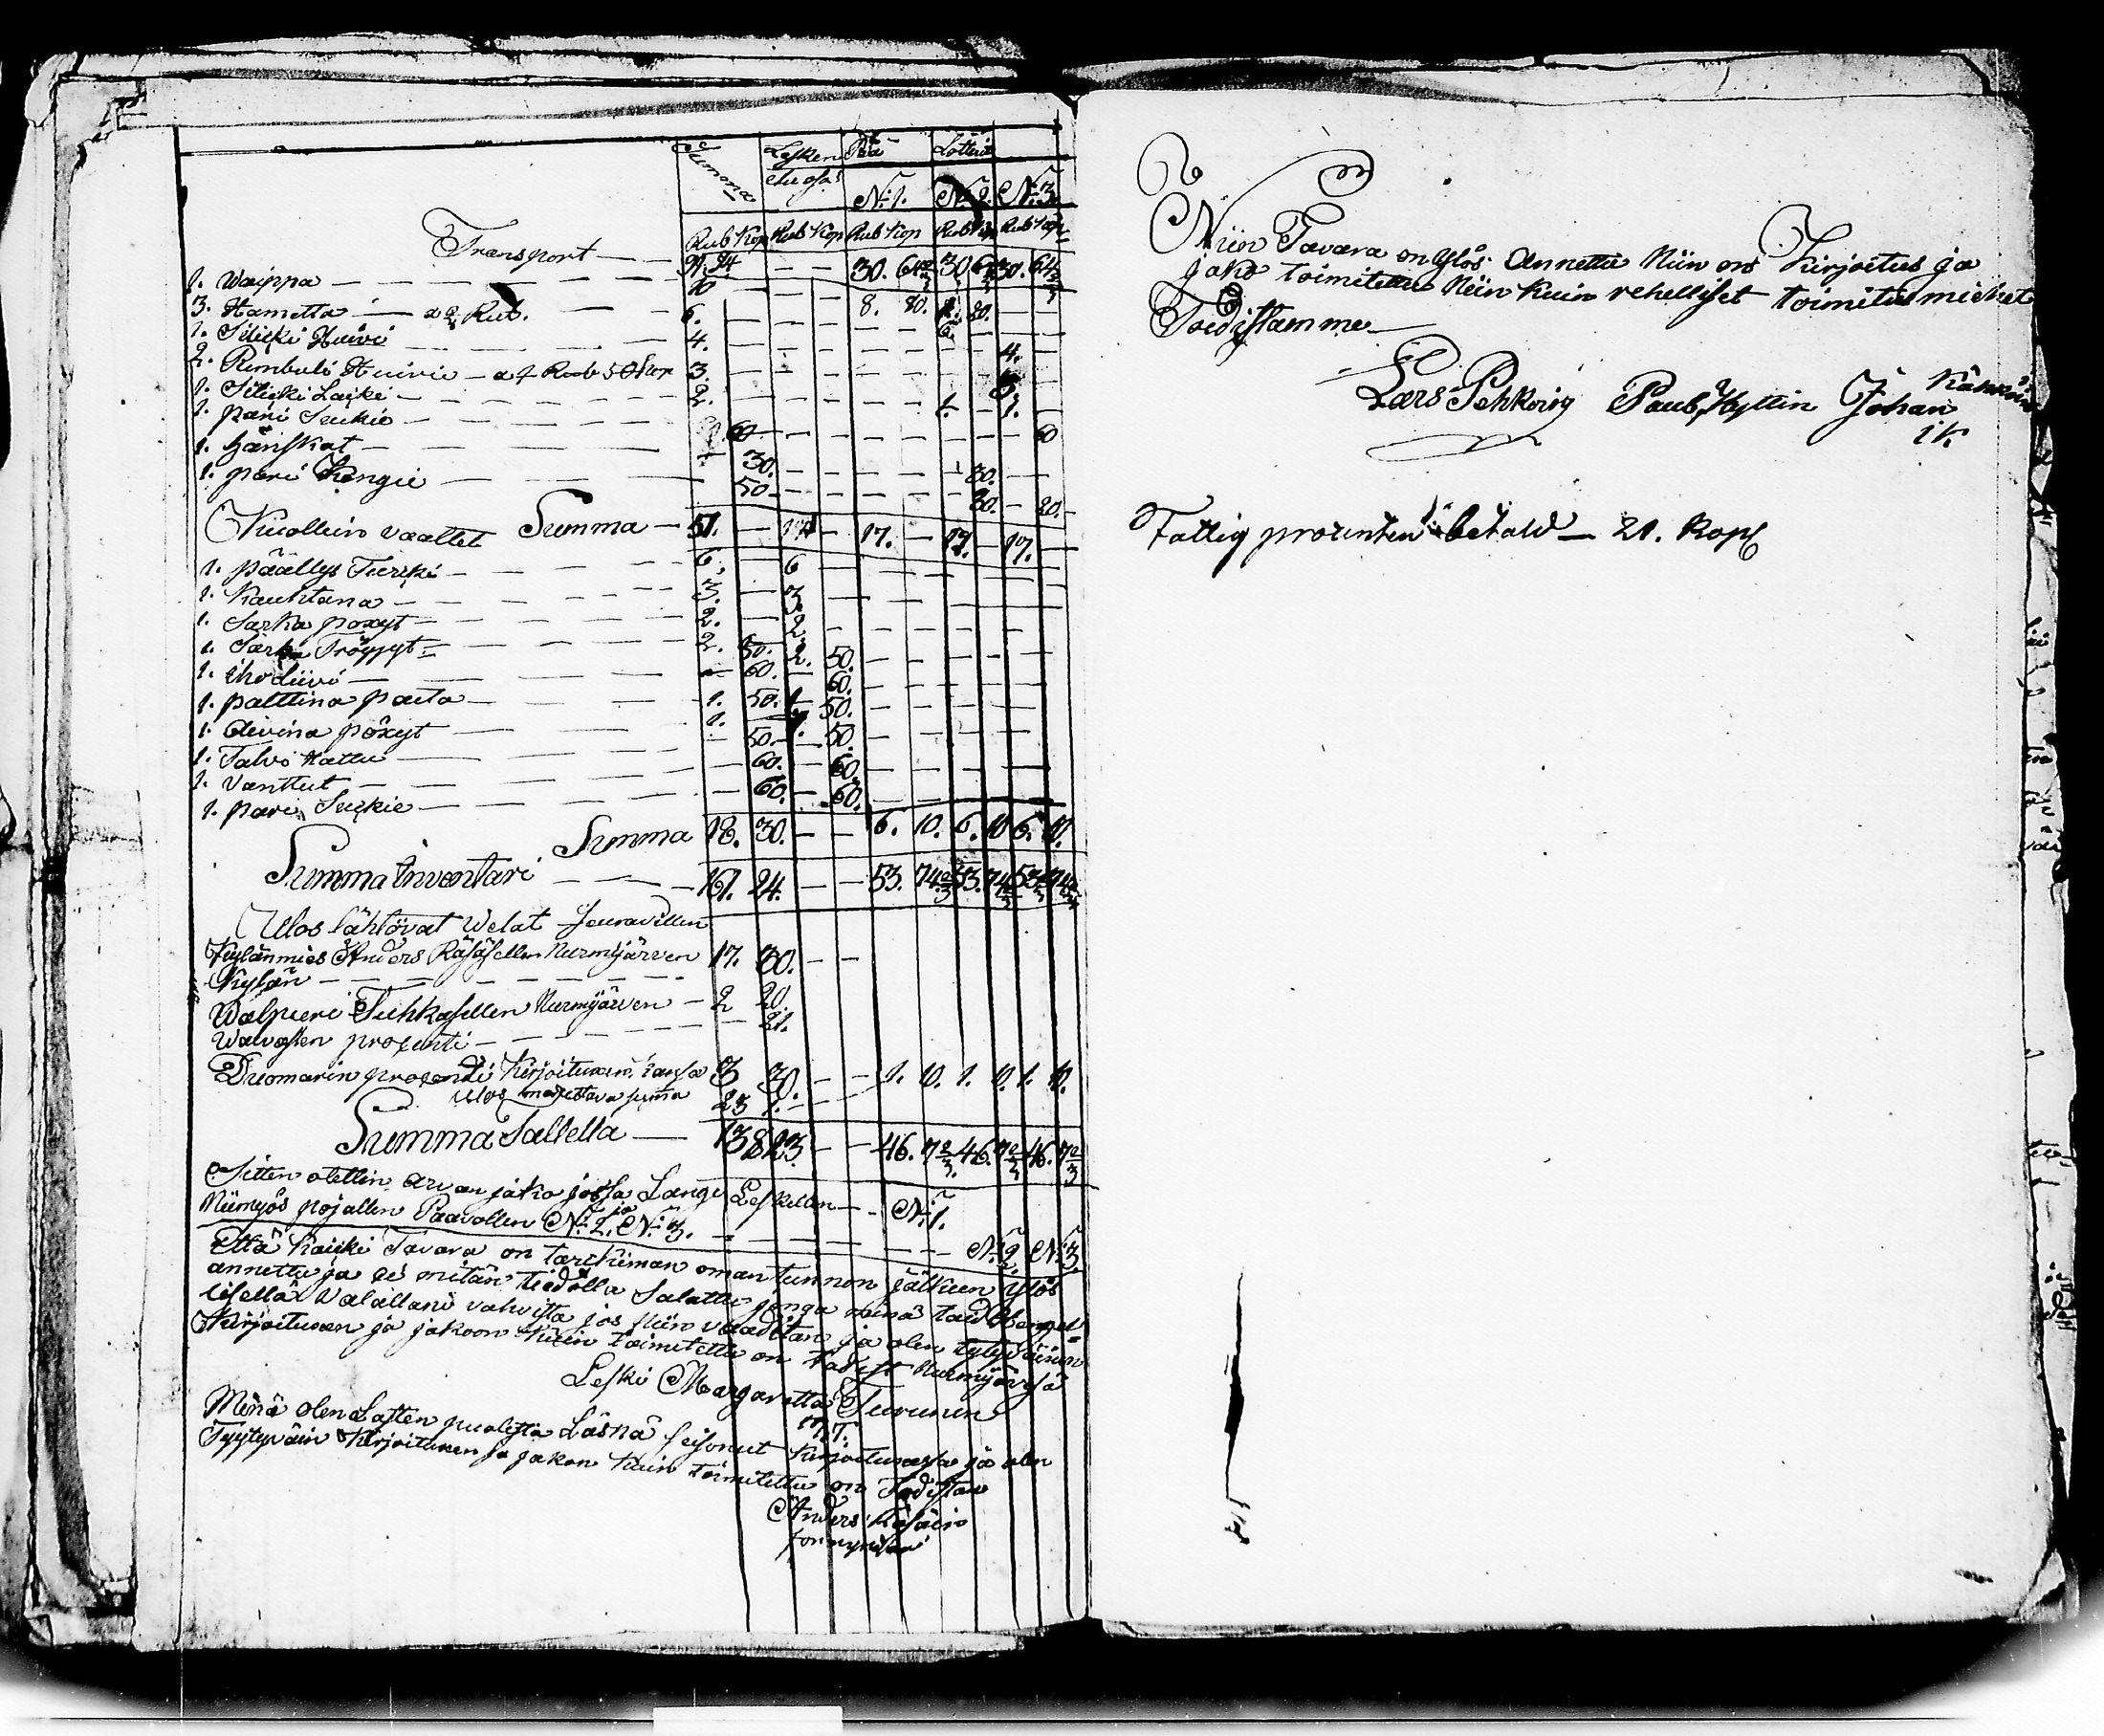 Summa Lesken Pää Lottia
etu osa
N:o 1. N:o 2. N:o 3.
Rub Kop Rub Kop Rub Kop Rub Kop Rub Kop
Transport — 91. 24 — — 30. 64 2/3 30 64 2/3 30. 64 2/3
1. Waippa — 10 — — 8. 80.
3. Hametta — a 2 Rub. — 6.
1. Silcki Huivi — 4. — 4.
2. Rumbuli Huivia — a 1 Rub 50 Kop 3. — 3.
1. Silcki Lacki — 2. — 1. — 1.
1. pari Suckia — 60 — 60
1. Hanskat — 30. — 30.
1. pari Kengie — 50 — 30. — 20.
Kuollein vaattet Summa — 51. — 17. — 17. — 17.
1. päällys Turcki — 6. — 6
1. Kauhtana — 3. — 3.
1. Sarka poxyt — 2. — 2.
1. Sarka Tröyyt — 2. 50. 2. 50.
1. Iho Liivi — 60. — 60.
1. palttina paita — 1. 50. 1. 50.
1. Aivina pöxyt — 1. — 1.
1. Talvi Hattu — 50. — 50.
1. Vanttut — 60. — 60.
1. pari Suckie — 60. — 60.
Summa 18. 30. — — 6. 10. 6. 10 6. 10.
Summa Inventari — 161. 24. — — 53. 74 2/3 53. 74 2/3 53 74 2/3
Ulos lähtövat Welat Seuravillen
Kylänmies Anders Räsäsellen Nurmijärven 17. 30. — —
Kylän —
Walpuri Tuhkasellen Nurmijärven — 2 20.
Waivasten prosenti — 21.
Duomarin prosendi Kirjoituxen kansa 3 30. — — 1. 10. 1. 10. 1. 10.
Ulos maxettava suma 23 1.
Summa Sallella — 138 23. — — 46. 7 2/3 46. 7 2/3 46. 7 2/3
Sitten otettin arvan jako jossa Langi Leskellen — N:o 1.
Niimyös pojallen Paavollen N:o 2. ja N:o 3. — N:o 2. N:o 3.
Että Kaicki Tavara on tarckiman oman tunnon jälkeen ylös
annettu ja ei mitän tiedolla Salattu jonga minä taidan
lisellä Valallani vahvista jos Niin vaaditan ja olen tytyväinen
Kirjoituxen ja jakoon Kuin toimitettu on todist Nurmijärvesä
Leski Margaretta Turunen
M.T.
Minä olen Lasten puolesta Läsnä seisonut Kirjoituxessa ja olen
Tyytyväin Kirjoituxen ja jakon Kuin toimitettu on Todistan
Anders Räsäin
formyndari
Niin Tavara on Ylös Annettu Niin on Kirjoitus ja
jako toimitettu Niin Kuin rehelliset toimitus miehet
Todistamme
Lars Pehkoin Paul Hyttin Johan Kähköin
i K.
Fattig procenten betald — 21. Kop